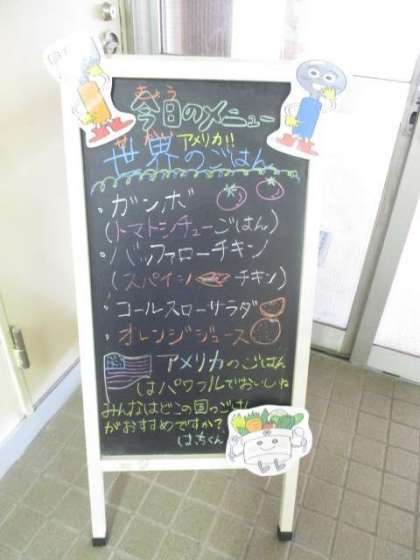 きょう
今日のメニュー
せかい
アメリカ!!
世界のごはん
・ガンボ
(トマトシチューごはん)
・バッファローチキン
(スパイシーチキン)
・コールスローサラダ
・オレンジジュース
アメリカのごはん
はパワフルでおいしいね
みんなはどこの国のごはん
がおすすめですか?
はっちくん